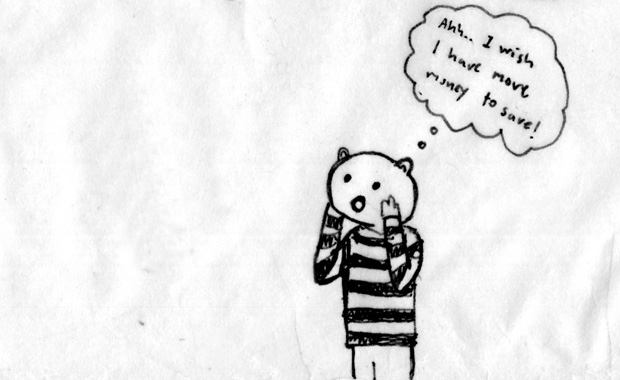 Ahh.. I wish
I have more
money to save!